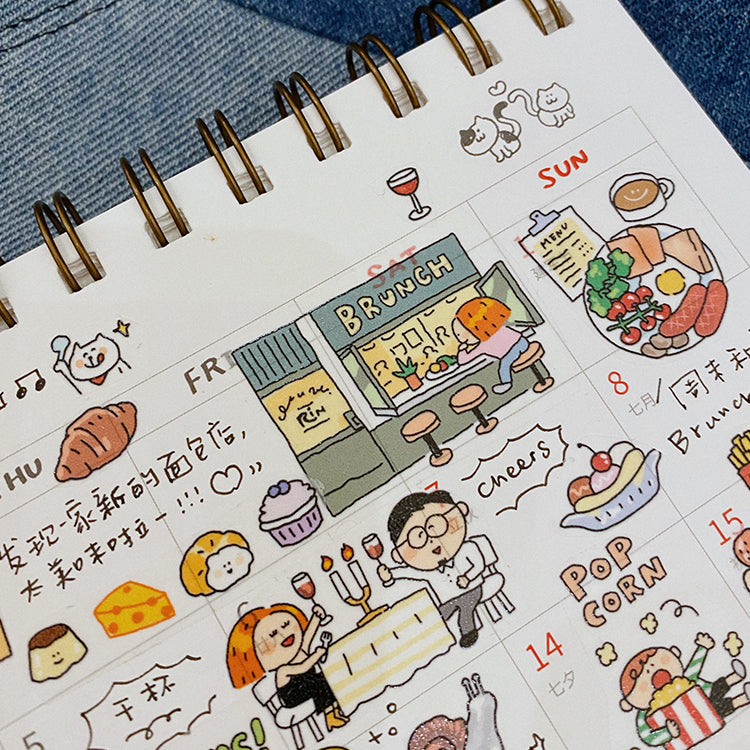 SUN
SAT
FRI
THU
BRUNCH
MENU
发现一家新的面包店,
太美味啦一!!!♡〃
8
七月
/周末和
Brunc
7
cheers
15
POP
CORN
14
七夕
干杯
5